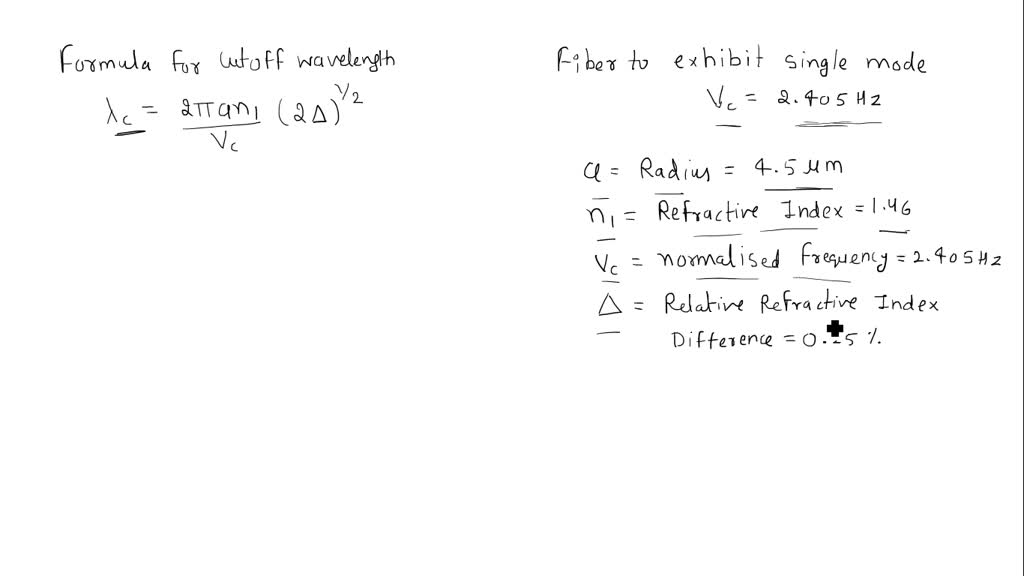 Formula for cutoff wavelength
λc = 2πan1 / Vc (2Δ)^1/2
Fiber to exhibit single mode
Vc = 2.405 Hz
a = Radius = 4.5 μm
n1 = Refractive Index = 1.46
Vc = normalised frequency = 2.405 Hz
Δ = Relative Refractive Index
Difference = 0.25 %.